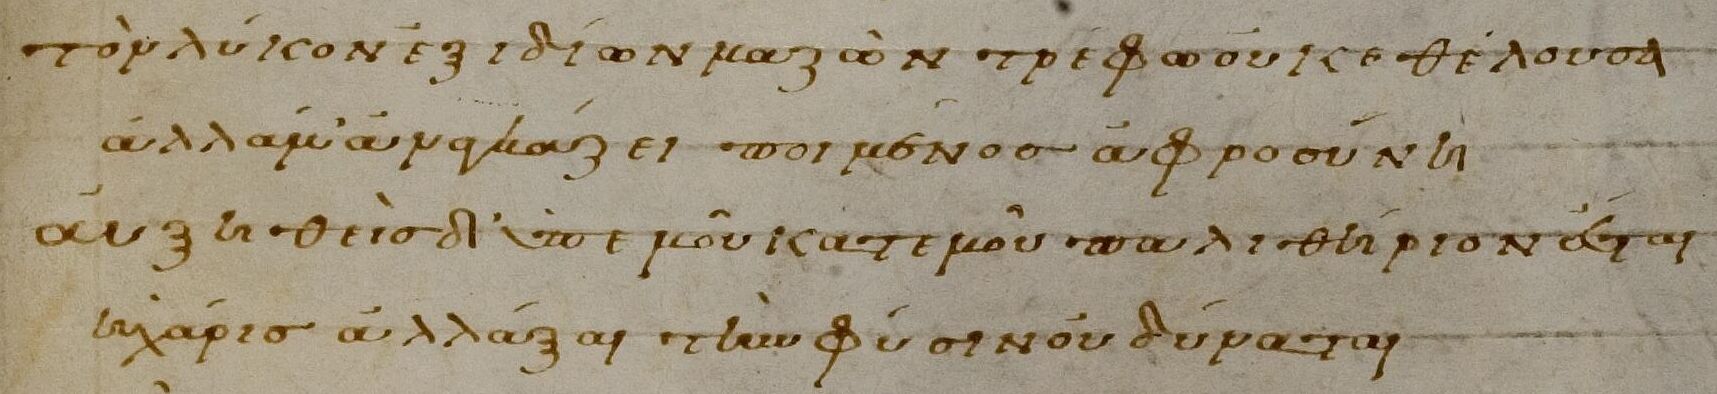 τὸν λύκον ἐξ ἰδίων μαζῶν τρέφω οὐκ ἐθέλουσα
ἀλλά μ' ἀναγκάζει ποιμένος ἀφροσύνη
αὐξηθεὶς δ' ὑπ' ἐμοῦ κατ' ἐμοῦ πάλι θηρίον ἔσται
ἡ χάρις ἀλλάξαι τὴν φύσιν οὐ δύναται